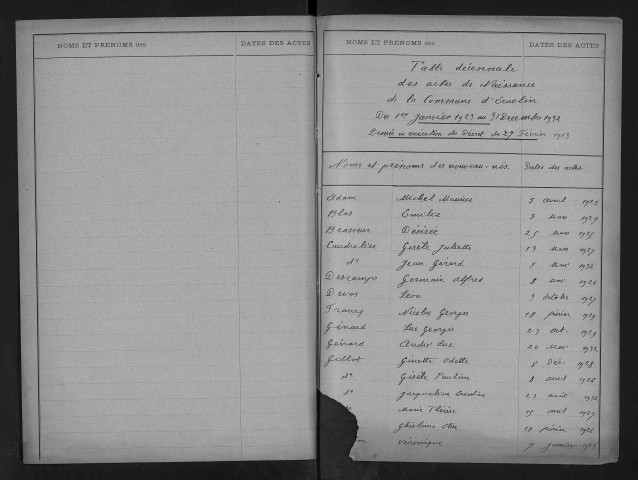 NOMS ET PRENOMS des
DATES DES ACTES
NOMS ET PRENOMS des
DATES DES ACTES
Table décennale
des actes de Naissance
de la Commune d'
Du 1er Janvier 1923 au 31 Décembre 1932
Dressée en exécution du Décret du 27 Février 1913
Noms et prénoms des nouveau-nés. Dates des actes
Adam Michel Maurice 5 avril 1925
Blas Emilie 3 Mars 1929
Brasseur Désirée 25 Mars
Gisèle Juliette 13 Mars 1927
do Jean Gérard 1932
Descamps Germain Alfred 8
Devos Léon 3 octobre 1927
Francq Nicolas Georges 18 février 1929
Génard Luc Georges 23 oct. 1929
Génard André Luc 20 Mai 1932
Gillot Ginette Odette 8 Déc. 1928
do Gisèle Pauline 8 avril 1926
do Jacqueline 23 août 1932
Marie Thérèse 15 avril 1927
Ghislaine 20 février
Véronique 7 janvier